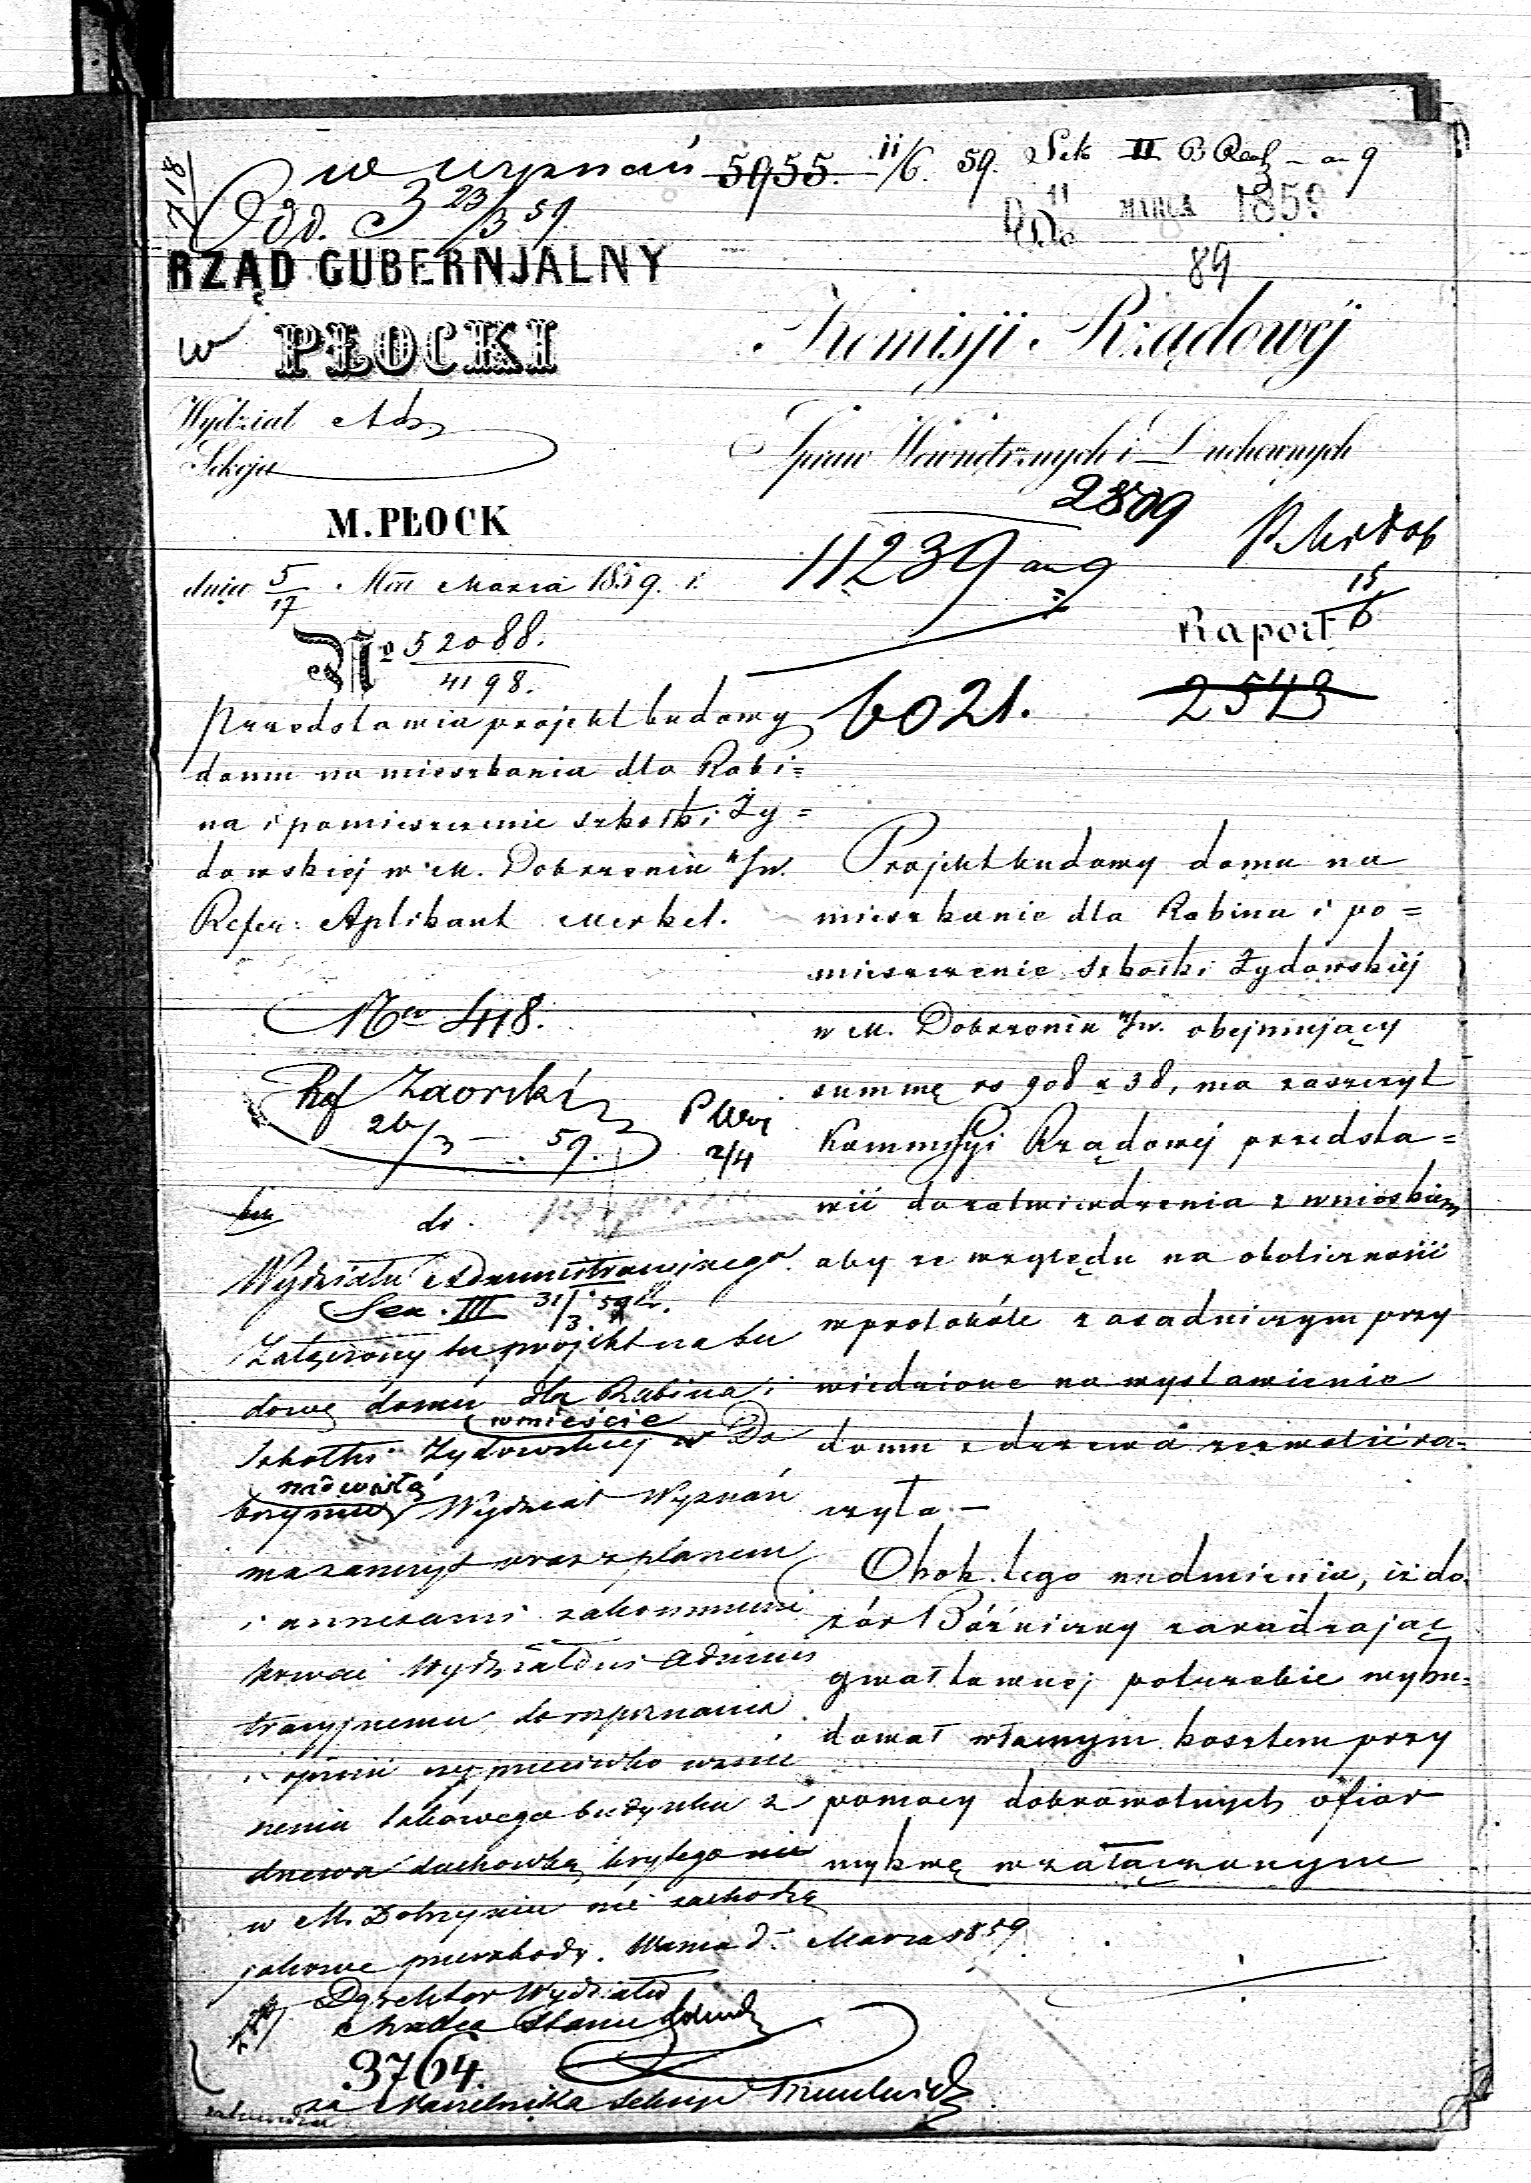 w wyznań 5955. 11/6. 59. Sek II
718
Odd. 3 23/3 59.
11 MARCA 1859
89
RZĄD GUBERNJALNY
w PŁOCKI
Komisji Rządowéj
Wydział Adm
Sekcja
Spraw Wewnętrznych i Duchownych
2809
M. PŁOCK
11239
dnia 5/17 Mca Marca 1859. r.
15/6
Raport
No 52088.
4198.
6021.
2543
Przedstawia projekt budowy
domu na mieszkania dla Rabi=
na i pomieszczenie szkółki Ży=
dowskiej w M. Dobrzyniu n/w.
Refer: Aplikant Merkel.
No 418.
Ref Zaorski
26/3 59.
2/4
do
Wydziału Administracyjnego
Sek. III 31/3 59 r.
Załączony tu projekt na bu
dowę domu dla Rabina i
w mieście
szkółki Żydowskiej w Do
nad Wisłą
brzyniu Wydział Wyznań
ma zaszczyt wraz z planem
i annexami zakommuni
kować Wydziałowi Adminis
tracyjnemu do rozpoznania
i opinii czy przeciwko wznie
sieniu takowego budynku z
drzewa dachówką krytego nie
w M. Dobrzyniu nie zachodzą
jakowe przeszkody. Warszawa d. Marca 1859
Dyrektor Wydziału
Radca Stanu
3764.
za Naczelnika Sekcyi
Projekt budowy domu na
mieszkanie dla Rabina i po=
mieszczenie szkółki Żydowskiéj
w M. Dobrzyniu n/w. obejmujący
summę rs 908 k 38, ma zaszczyt
Kommissyi Rządowéj przedsta=
wić do zatwierdzenia z wnioskiem
aby ze względu na okoliczności
w protokóle zasadniczym przy
wiedzione na wystawienie
domu z drzewa zezwolić ra=
czyła. —
Obok tego nadmienia, iż do
zór Bóźniczny zaradzając
gwałtownej potrzebie wybu=
dował własnym kosztem przy
pomocy dobrowolnych ofiar
mykwę w załączonym